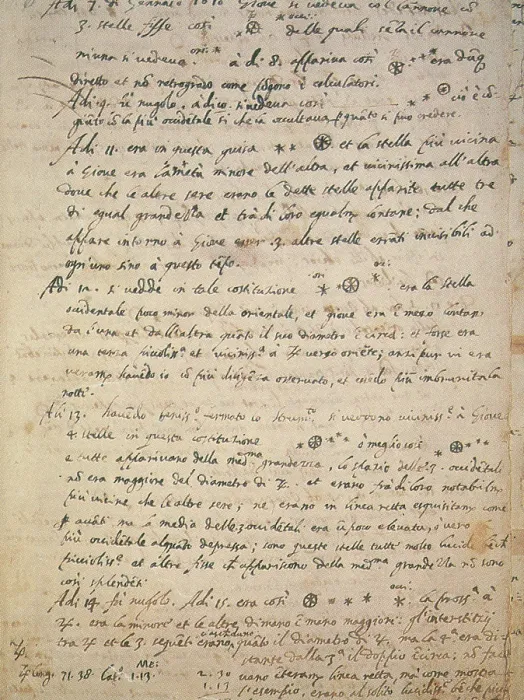 Adi 7. di Gennaio 1610 Giove si vedeva col Cannone co
3. stelle fisse così delle quali senza il cannone
niuna si vedeva. à dì 8. appariva così era dūq
diretto et nō retrogrado come i calculatori.
Adi 9. fù nugolo. à dì 10. si vedeva così ciò è cō-
giūto cō la più occidētale si che la occultava p quāto si può credere.
Adi 11. era in questa guisa et la stella più vicina
à Giove era la metà minore dell'altra, et vicinissima all'altra
dove che le altre sere erano le dette stelle apparite tutte tre
di egual grandezza et trà di loro egualm. lontane; dal che
appare intorno à Giove esser 3. altre stelle errāti invisibili ad
ogn'uno sino à questo tēpo.
Adi 12. si vedde in tale costituzione era la stella
occidentale poco minor della orientale, et giove era ī mezo lontano
da l'una et da l'altra quāto il suo diametro ī circa: et forse era
una terza piccoliss.ª et viciniss.ª à ♃ verso oriēte; anzi pur vi era
veramē. havēdo io cō più diligēza osservato, et essēdo più imbrunita la
notte.
Adi 13. havēdo beniss.º fermato lo strum.to si veddono viciniss.e à Giove
4. stelle in questa costituzione ò meglio così
e tutte apparivano della med.ma grandezza, lo spazio delle 3. occidētali
nō era maggiore del diametro di ♃. et erano frà di loro notabilm.
più vicine che le altre sere; ne erano in linea retta esquisitam. come
p avāti ma la media delle 3 occidētali era ū poco elevata, ò vero
la più occidētale alquāto depressa; sono queste stelle tutte molto lucide bēch
piccoliss.e et altre fisse che appariscono della med.ma grandezza nō sono
così splendēti.
Adi 14. fù nugolo. Adi 15. era così la pross.ª à
♃. era la minore et le altre di mano ī mano maggiori: gl'interstitij
tra ♃ et le 3. seguēti erano, quāto il diametro di ♃. ma la 4.ª era di-
stante dalla 3.ª il doppio ī circa; nō face
♃ long. 71. 38. lat. 1. 13. vano interam. linea retta, ma come mostra
l'essempio, erano al solito lucidiss.e bēche picc